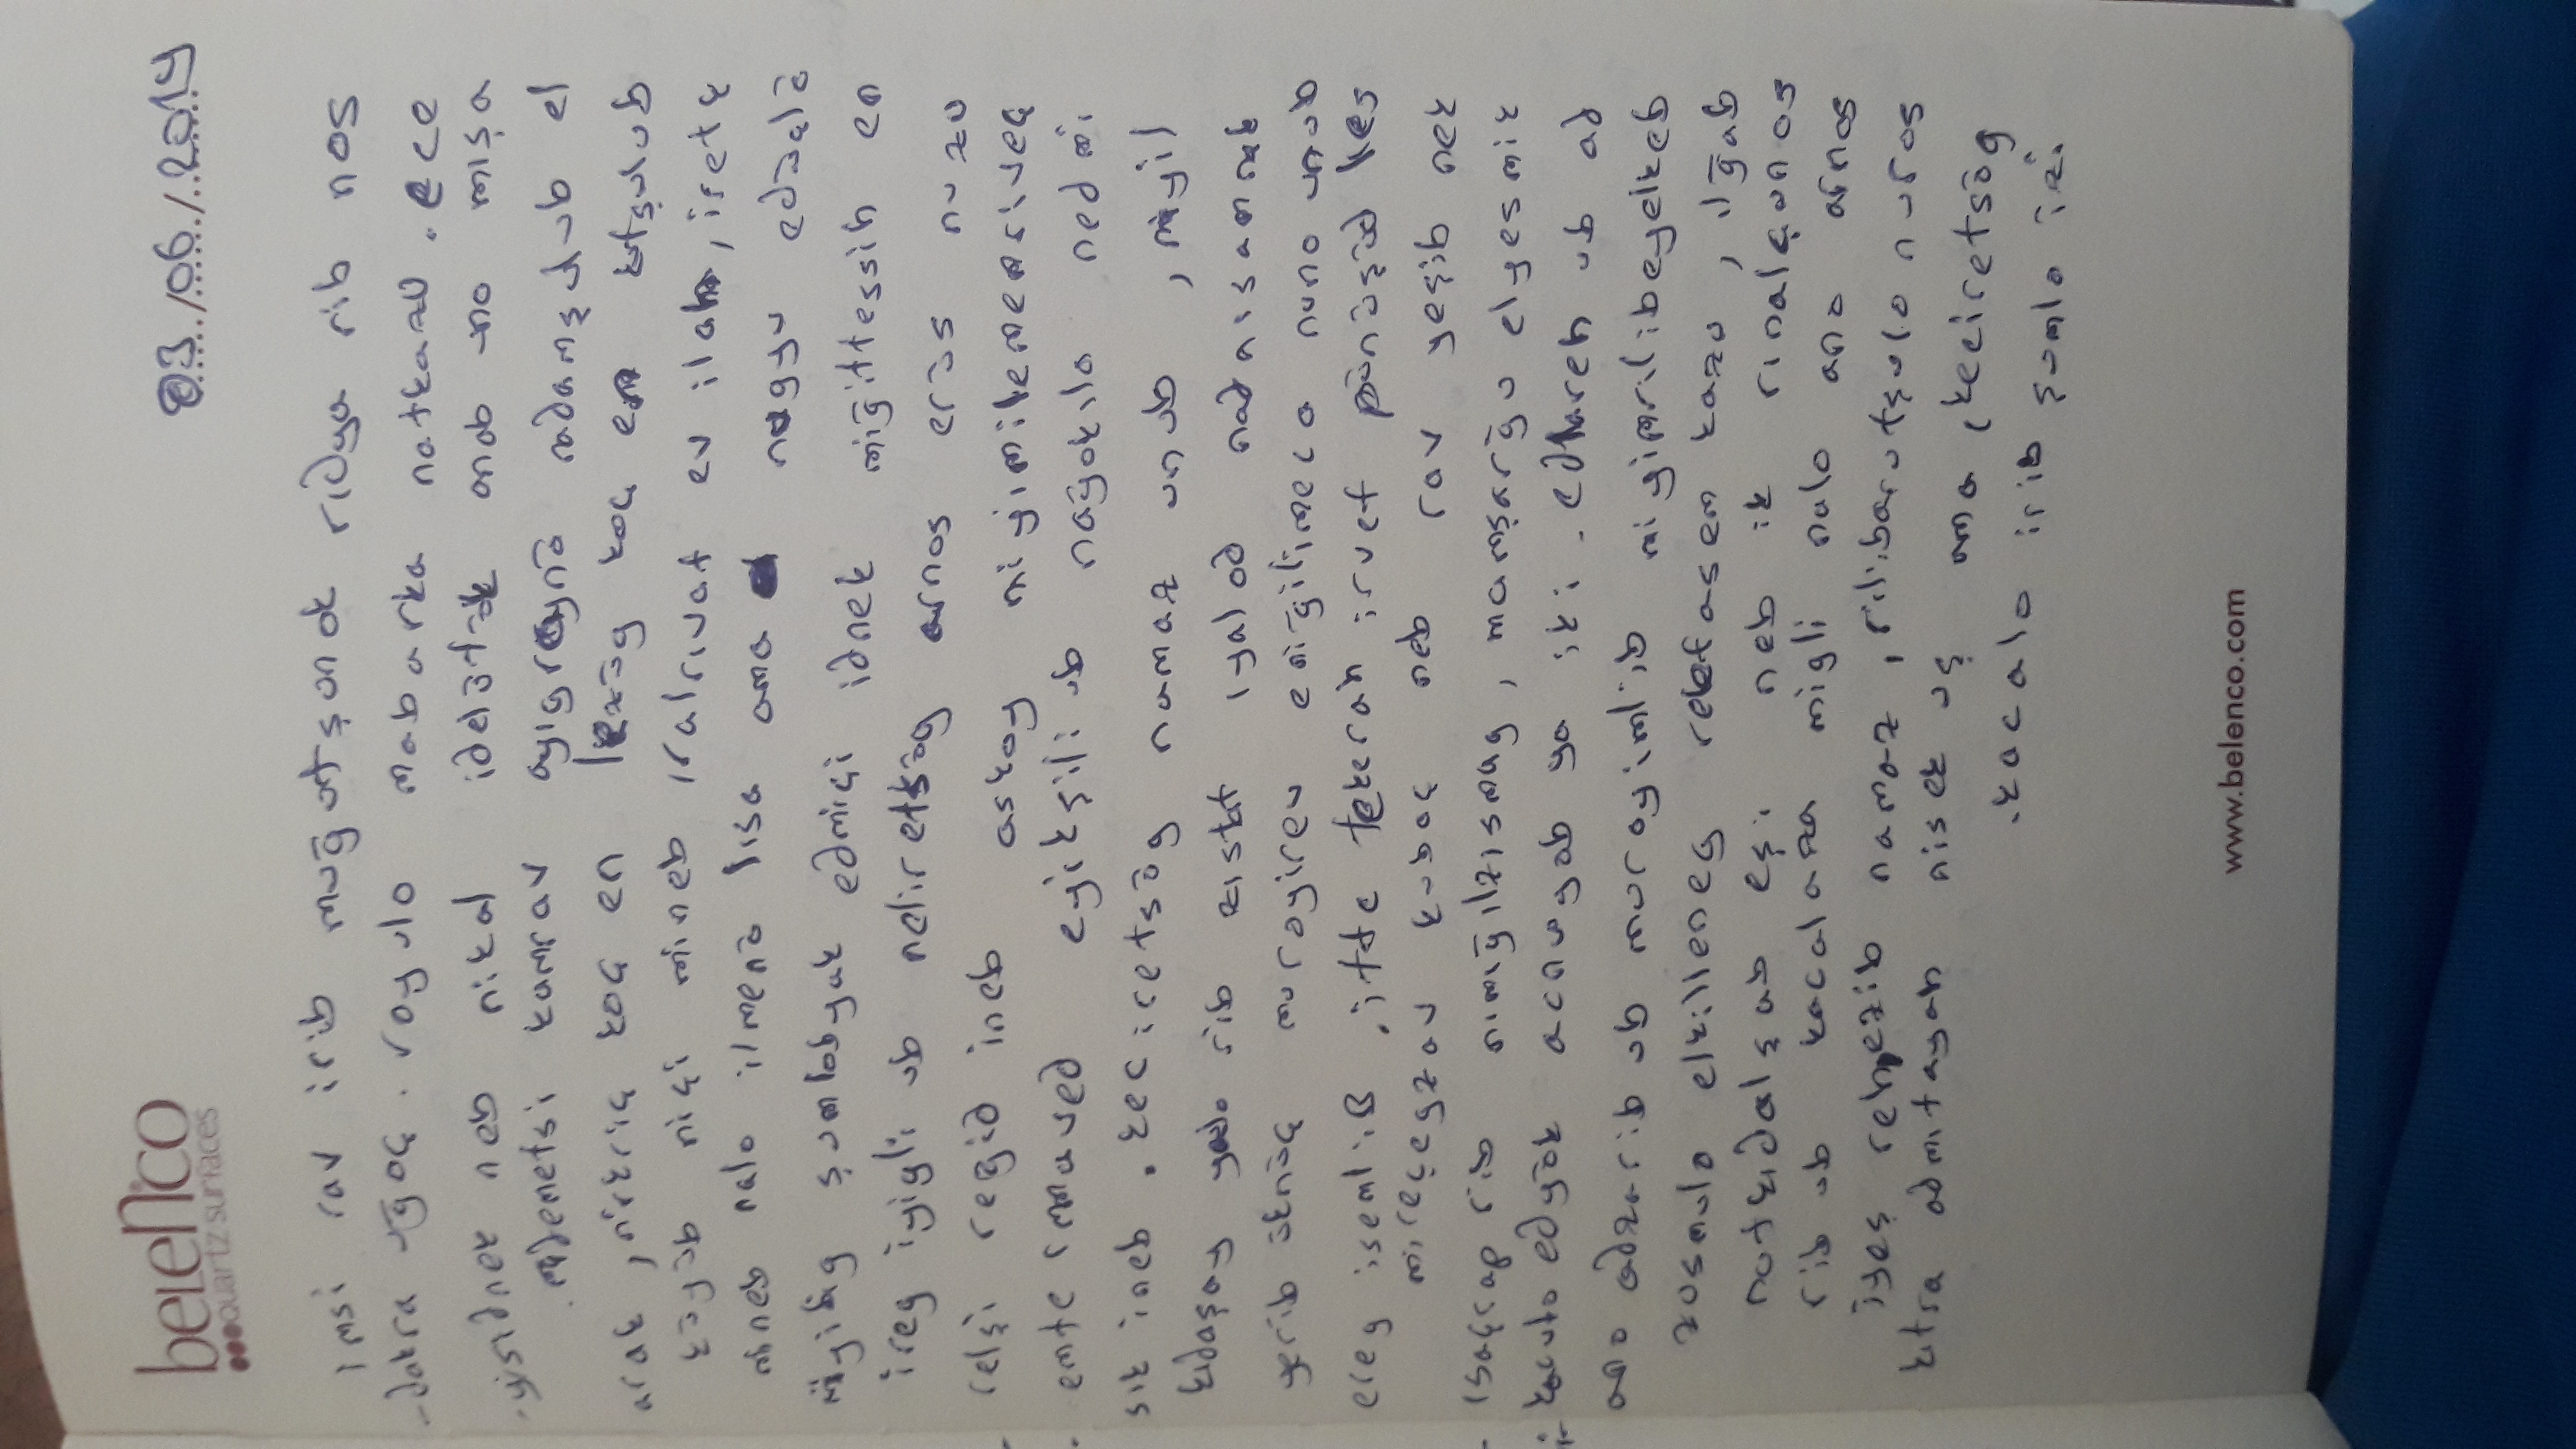 belenco
quartz surfaces
03/06/2019
imsi rav irib muğutşunok ridya rib nos
-dakra uğoç . royulo mabarka natkazu . ece
-yisidnek neb nikal idelötök anab uno mışa
.medemetsi kamrav ayıgreynö nadamşulub el
arak , nirkriç koç en lezög koç en kutşulub
köyüb niçi mineb ıralrıvat ev ilah , iretk
mineb nalo ilmenö lısa ama nagyu edüçlö
miyibig şumlobyak edmiçi idnek miğittessih en
ireg iyigli ub neliretsög arnos erüs nuzu
relşi reğid ineb askoy miyimilememriveç
emte ımaved eyikşili ub nağokılo nedmi
sık ineb . keciretsög namaz unub , miyil
kıdaşay yalo rib zıstat ıyalod nadnısamnak
yerib üknüç muroyirev eniğilimeca nuno unub
ereg isemliB . itte tekerah irvet pünüşüd lkes
mireçegzav kubaç neb rav yeşib nek
ısaçrap rib nımığılzısmag , mamşarğu elyesmik
kacuto edyök acnuyob ya iki . edlareh ub ad
ana adzarib ub muroyimlib miyimrilibeyelkeb
zusmulo elkilleneg relefasem kazu , ılğab
natkıdalşab eşi neb ik rınalçunos
rib ub kacalaza migli nalo ana arnos
iyeş rehezib namaz , rilibarutşulo nuros
kıtra admıtayah nisek uş ama , keciretsög
.kacalo irib şumlo izi
www.belenco.com